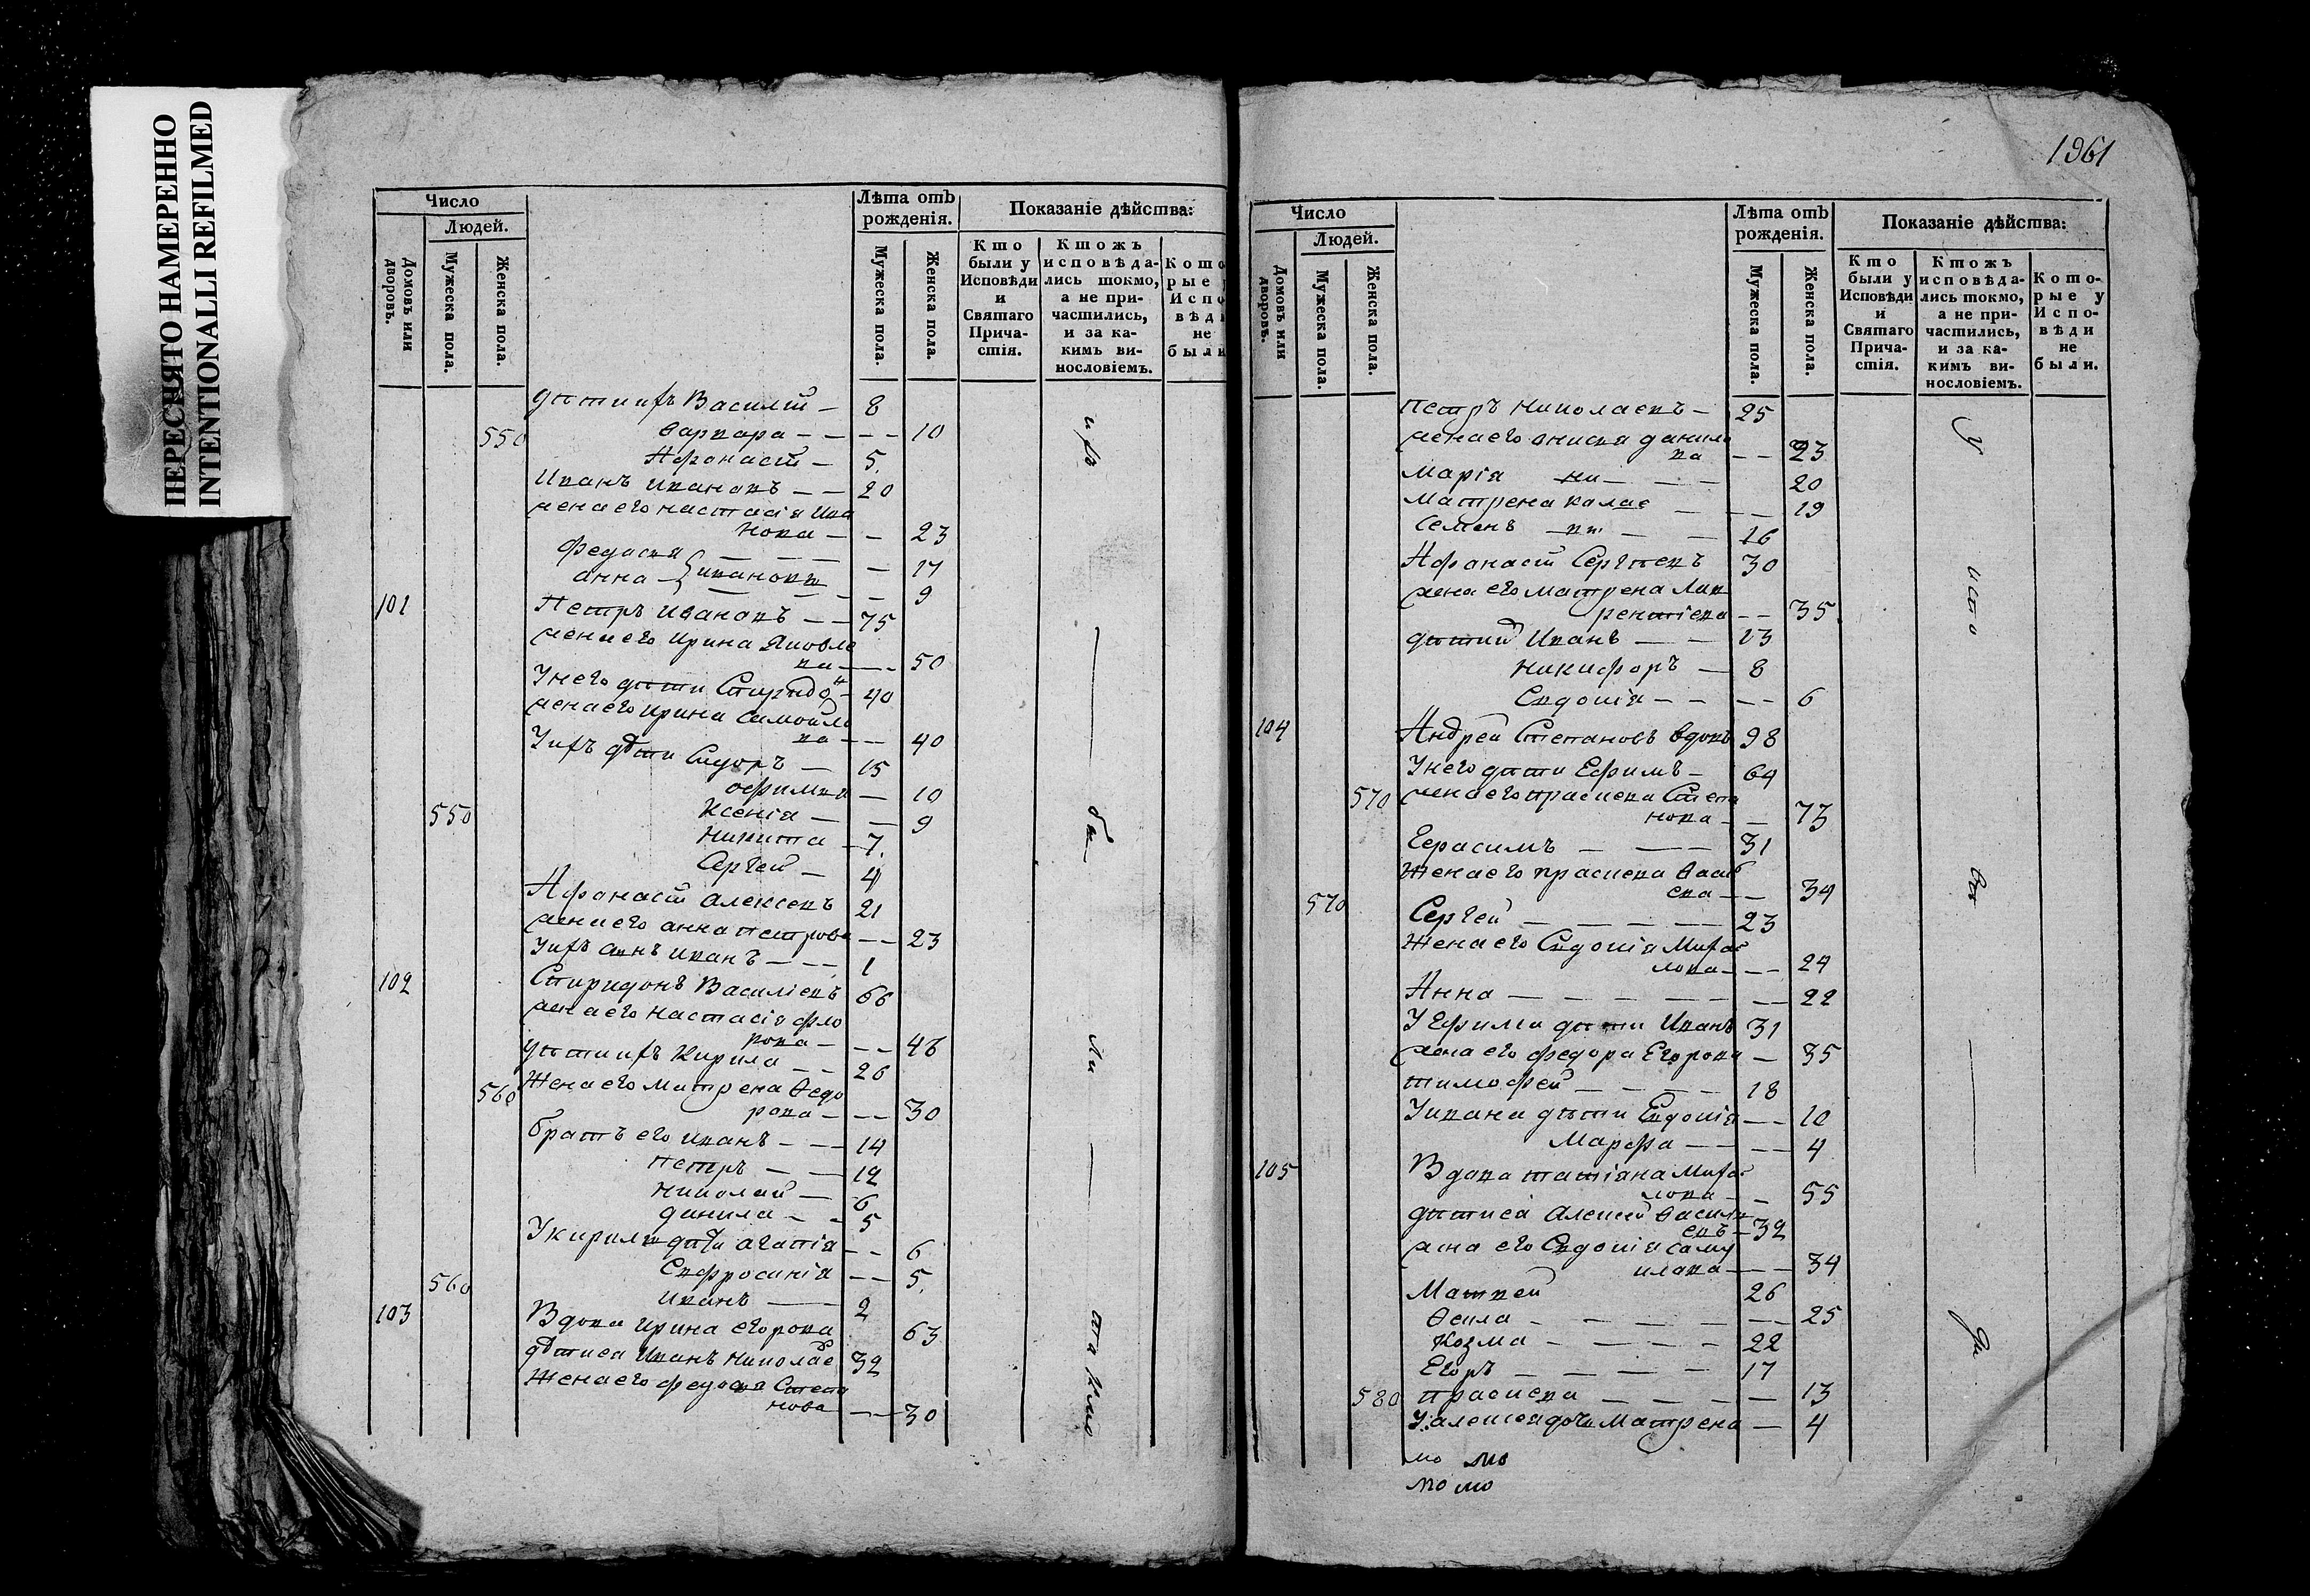 ПЕРЕСНЯТО НАМЕРЕННО
INTENTIONALLI REFILMED
Число
Людей.
Домовъ или дворовъ.
Мужеска пола.
Женска пола.
Лѣта отъ рожденія.
Мужеска пола.
Женска пола.
Показаніе дѣйства:
Кто были у Исповѣди и Святаго Причастія.
Ктожъ исповѣдались токмо, а не причастились, и за какимъ винословіемъ.
Кото рые Испо вѣд не были
дѣти ихъ Василій — 8
550 Варвара — — — — 10
Афанасій — 5
Иванъ Ивановъ — — 20
жена его Настасія Ива
нова — — 23
Федосья — — — — 17
Анна — } Ивановы — — 9
101 Петръ Ивановъ — — 75
жена его Ирина Яковле
ва — — — 50
У него дѣти Спиридонъ — 40
жена его Ирина Самойло
ва — — 40
У ихъ дѣти Сидоръ — 15
Офимья — 10
Ксенія — — 9
550 Никита — 7
Сергей — 4
Афанасій Алексевъ 21
жена его Анна Петрова — — 23
У ихъ сынъ Иванъ — — — 1
102 Спиридонъ Василіевъ 66
жена его Настасія Фло
рова — — — 48
дѣти ихъ Кирила — — 26
560 Жена его Матрена Ѳедо
рова — — — 30
братъ его Иванъ — — — 14
Петръ — — 12
Николай — 6
Данила — — 5
У Кирилы дѣти Агапія — — 6
Евфросинія — — 5
560 Иванъ — 2
103 Вдова Ирина Егорова 63
дѣти ея Иванъ Николае 32
Жена его Федосья Степа
нова — — 30
и бо
бы
ли
тако
1961
Число
Людей.
Домовъ или дворовъ.
Мужеска пола.
Женска пола.
Лѣта отъ рожденія.
Мужеска пола.
Женска пола.
Показаніе дѣйства:
Кто были у Исповѣди и Святаго Причастія.
Ктожъ исповѣдались токмо, а не причастились, и за какимъ винословіемъ.
Которые у Исповѣди не были.
Петръ Николаевъ — 25
жена его Анисья Данило
ва — — 23
Марія — — — 20
Матрена — — — 19
Семенъ — — 16
Афанасій Сергѣевъ 30
жена его Матрена Лав
рентіева — — 35
дѣти Иванъ — — 13
Никифоръ — 8
Евдокія — — — — 6
104 Андрей Степановъ вдовъ 98
У него дѣти Ефимъ — 64
570 жена его Прасковья Степа
нова — — 73
Герасимъ — — — 31
Жена его Прасковья
ева — — 34
570 Сергей — — — — 23
Жена его Евдокія Михай
лова — — — 24
Анна — — — — — — 22
У Ефима дѣти Иванъ 31
жена его Федора Егорова — 35
Тимофей — — — — 18
У Ивана дѣти Евдокія — — 10
Марфа — — — — 4
105 Вдова Татіана Михай
лова — — 55
дѣти ея Алексей Василі
евъ — 32
жена его Евдокія Саму
илова — — — 34
Матвей 26
Ѳекла — — — — — — 25
Козма — — — — 22
Егоръ — — — — 17
580 Прасковья — — — — — 13
У Алексея дочь Матрена — 4
мо мо
мо мо
У
исто